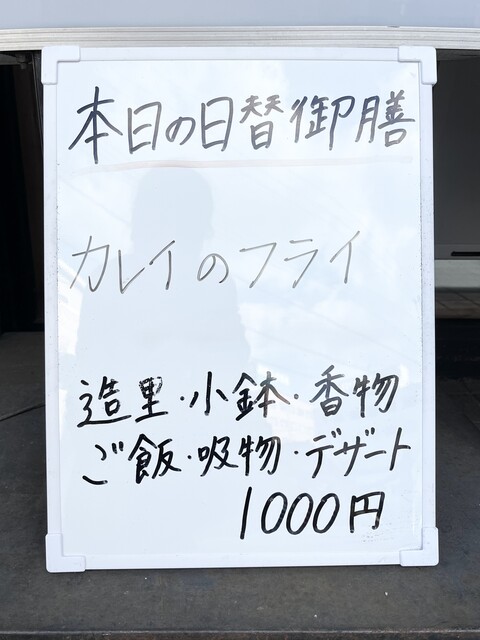 本日の日替御膳
カレイのフライ
造里・小鉢・香物
ご飯・吸物・デザート
1000円